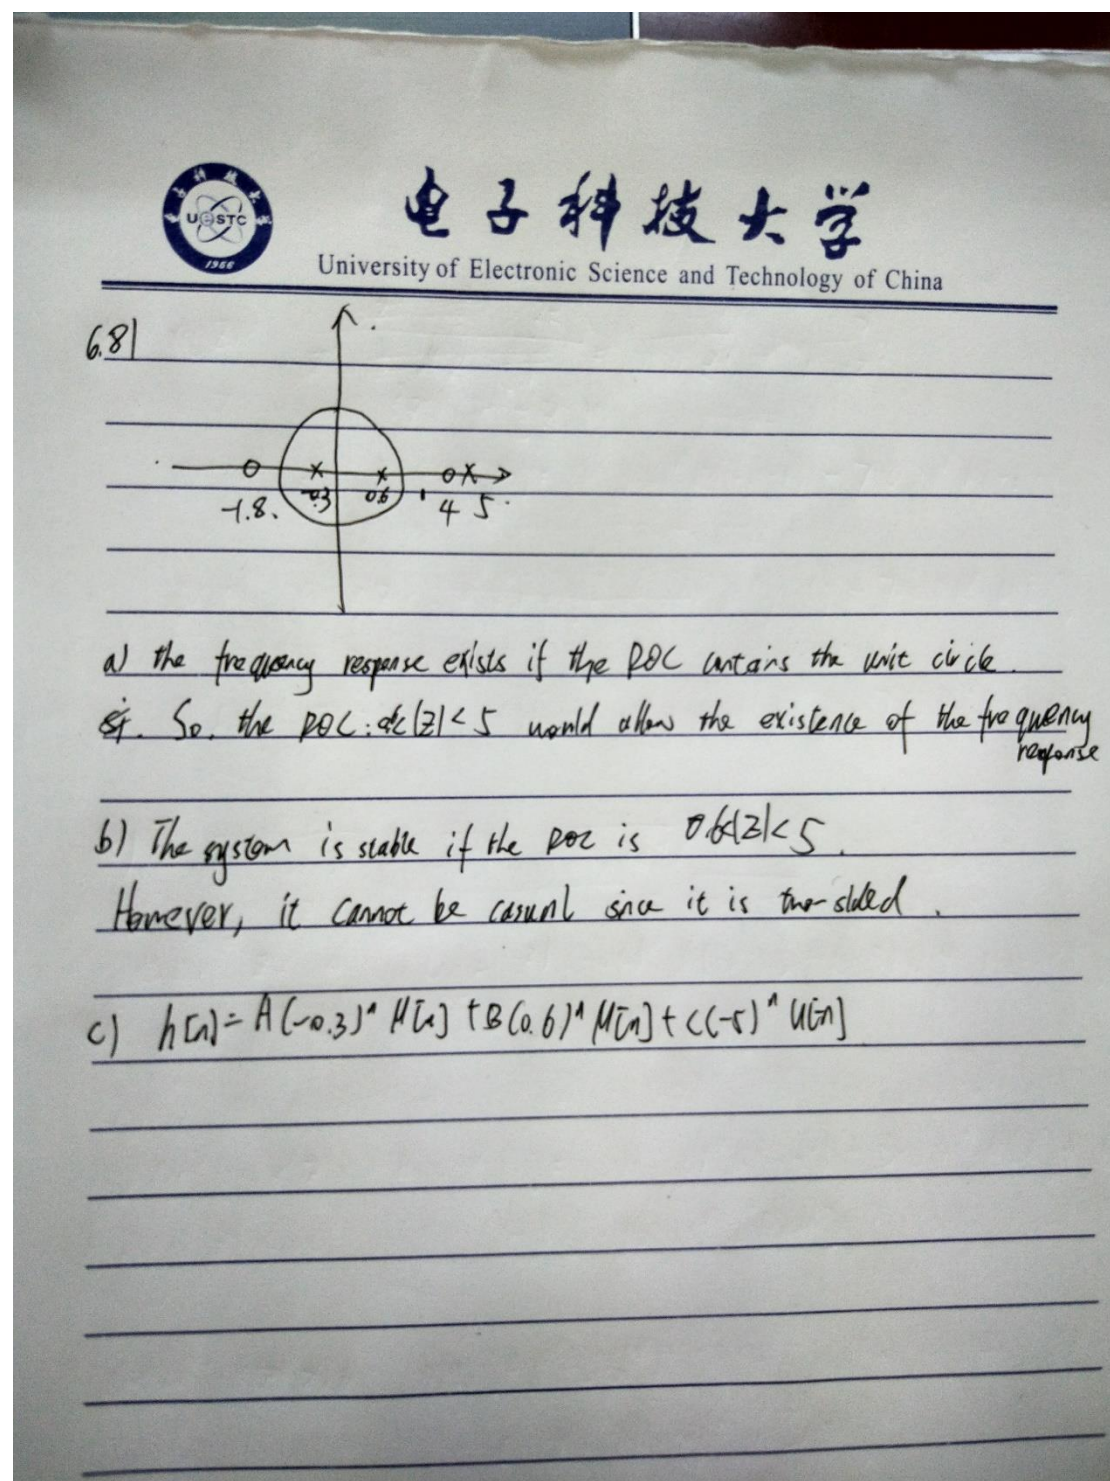 UESTC
1956
电子科技大学
University of Electronic Science and Technology of China
6.8
-1.8. -0.3 0.6 4 5
a) the frequency response exists if the ROC contains the unit circle.
So. the ROC: |z| < 5 would allow the existence of the frequency
response
b) The system is stable if the ROC is 0.6<|z|< 5.
However, it cannot be casual since it is two-sided.
c) h[n] = A(-0.3)ⁿ μ[n] + B(0.6)ⁿ μ[n] + C(-5)ⁿ u[-n]